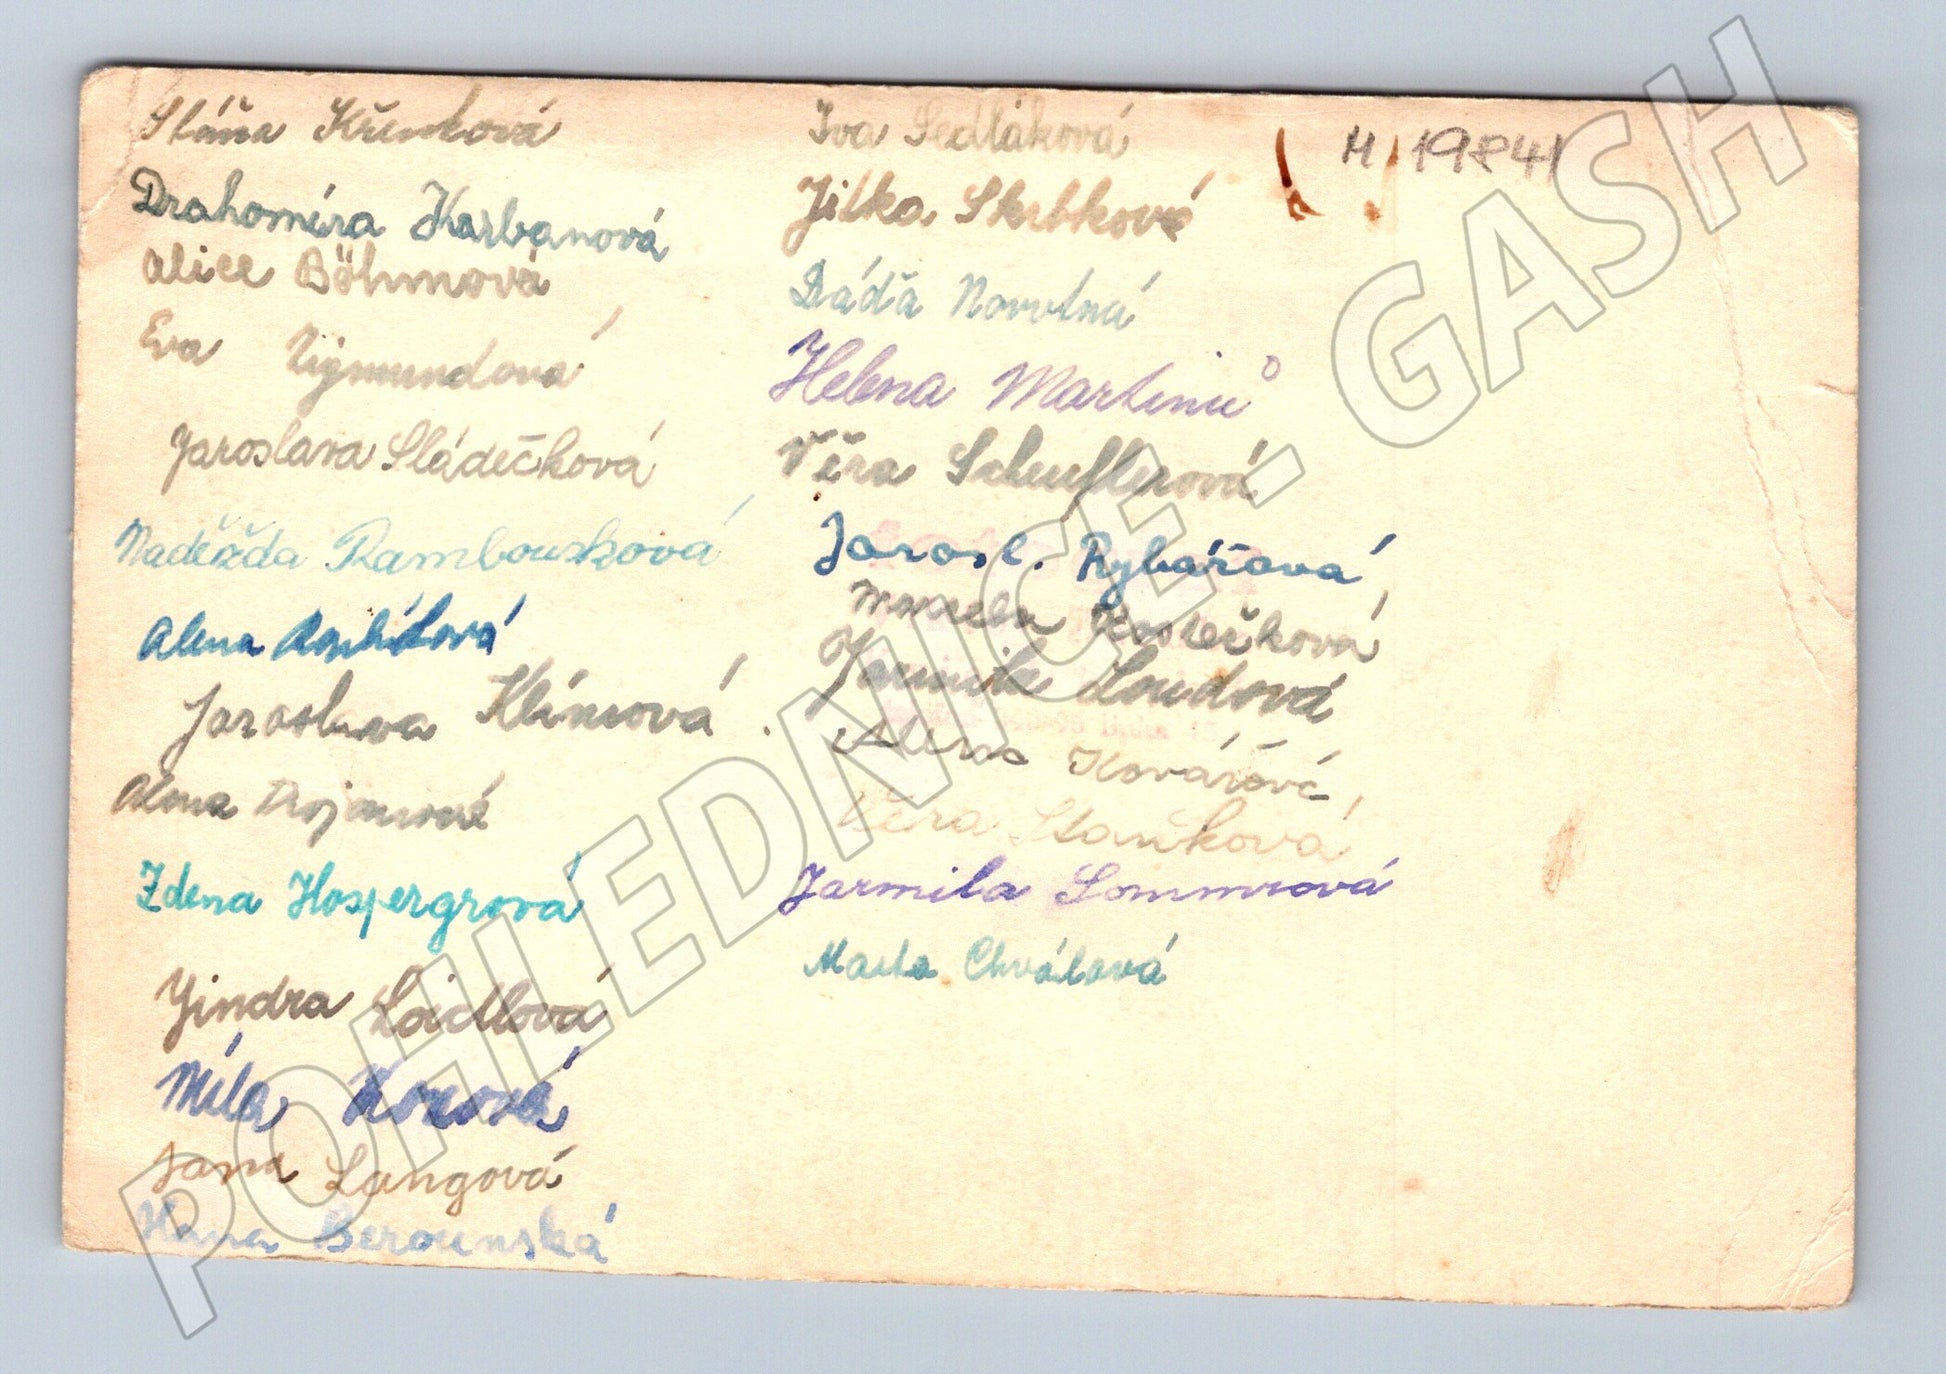 Sláňa Křenková
Drahomíra Karbanová
Alice Böhmová
Eva Zigmundová
Jaroslava Sládečková
Naděžda Rambousková
Alena
Jaroslava Klímová
Alena Trojanová
Zdena Hospergrová
Jindra Loidlová
Míla
Jana Langová
Hana Berounská
Iva Sedláková
Jitka Skrbková
Dáďa Novotná
Helena Martinů
Věra Scheuflerová
Jarosl. Rybářová
Marcela Kostečková
Jarmila Loudová
Alena Kovářová
Věra Staňková
Jarmila Sommrová
Marta Chválová
M 19841
POHLEDNICE - GASH